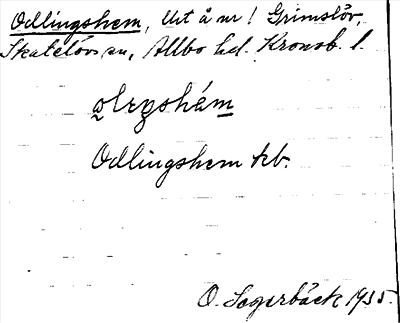 Odlingshem, Urt å nr 1 Grimslöv,
Skatelövs sn, Allbo hd. Kronob. l.
Odlingshem kb.
O. Lagerbäck 1935.